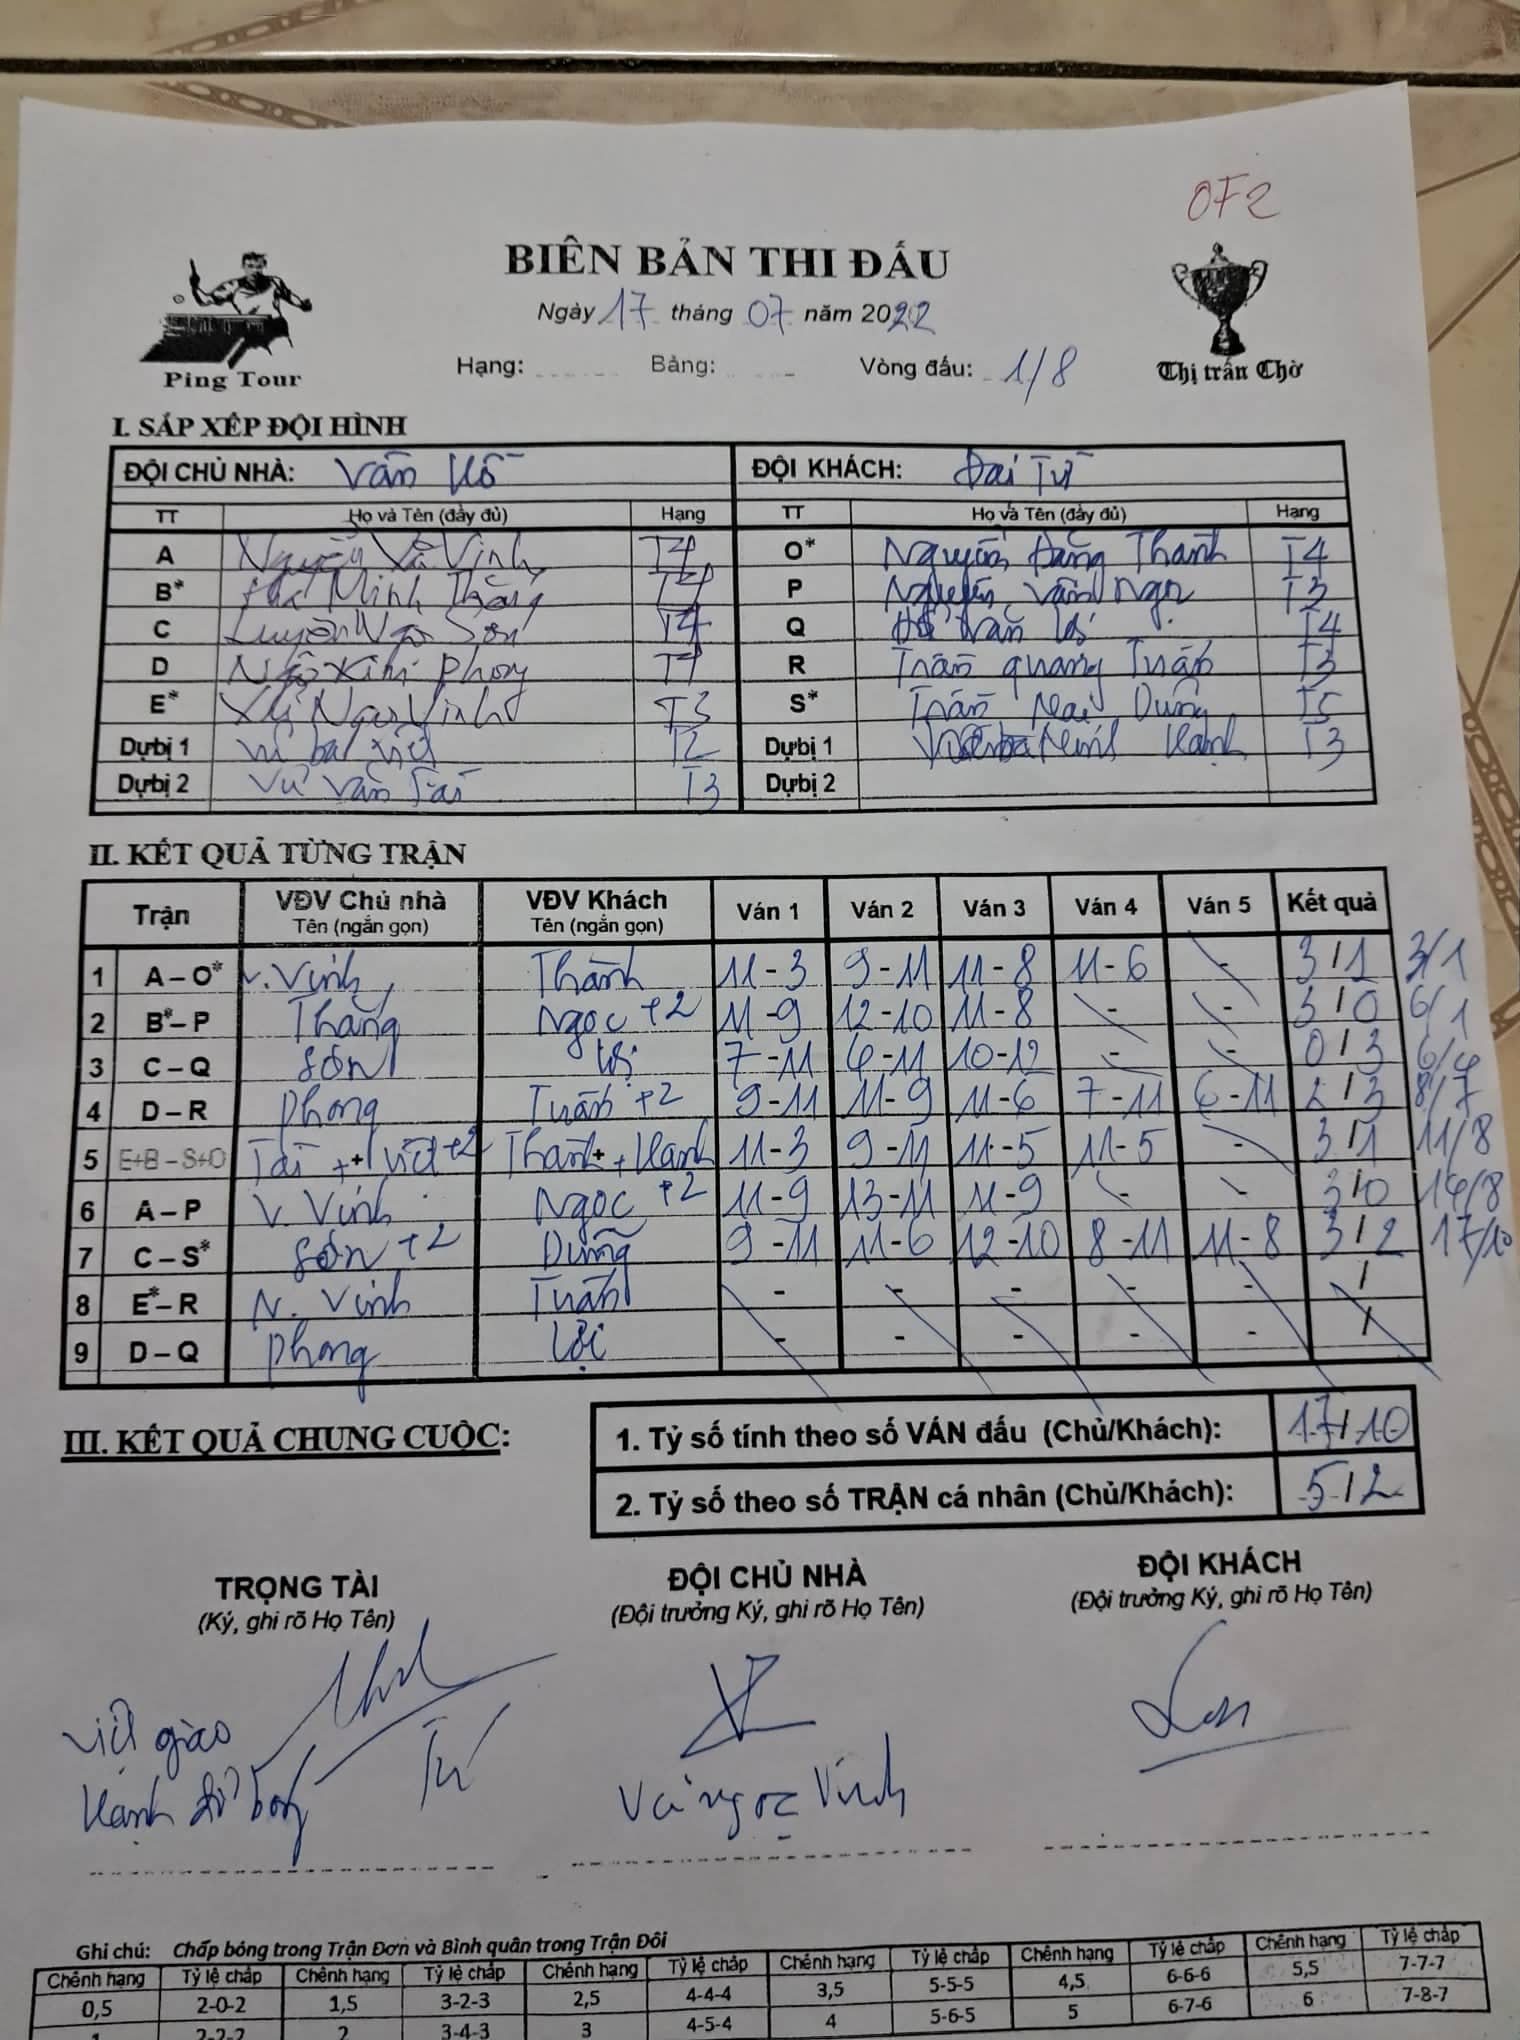 OF2
BIÊN BẢN THI ĐẤU
Ngày 17 tháng 07 năm 2022
Ping Tour
Hạng: Bảng: Vòng đấu: 1/8
Thị trấn Chờ
I. SẮP XẾP ĐỘI HÌNH
ĐỘI CHỦ NHÀ: Văn Hố ĐỘI KHÁCH: Đại Từ
TT Họ và Tên (đầy đủ) Hạng TT Họ và Tên (đầy đủ) Hạng
A Nguyễn Vinh T4 O* Nguyễn Đăng Thanh T4
B* Minh Thắng T4 P Nguyễn Văn Ngọc T3
C Sơn T4 Q Lợi T4
D Phong R Trần quang Tuấn T3
E* Vinh T3 S* Trần Mai Dũng T5
Dự bị 1 T2 Dự bị 1 Hạnh T3
Dự bị 2 Vũ Văn Tài T3 Dự bị 2
II. KẾT QUẢ TỪNG TRẬN
Trận VĐV Chủ nhà Tên (ngắn gọn) VĐV Khách Tên (ngắn gọn) Ván 1 Ván 2 Ván 3 Ván 4 Ván 5 Kết quả
1 A – O* V. Vinh Thành 11-3 9-11 11-8 11-6 - 3/1 3/1
2 B*– P Thắng Ngọc +2 11-9 12-10 11-8 - - 3/0 6/1
3 C – Q Sơn 7-11 6-11 10-12 - - 0/3 6/4
4 D – R Phong Tuấn +2 9-11 11-9 11-6 7-11 6-11 2/3 8/7
5 E+B – S+O Tài + Việt +2 Thành + Hạnh 11-3 9-11 11-5 11-5 - 3/1 11/8
6 A – P V. Vinh Ngọc +2 11-9 13-11 11-9 - - 3/0 14/8
7 C – S* Sơn +2 Dũng 9-11 11-6 12-10 8-11 11-8 3/2 17/10
8 E*– R N. Vinh Tuấn - - - - - /
9 D – Q Phong Lợi - - - - - /
III. KẾT QUẢ CHUNG CUỘC:
1. Tỷ số tính theo số VÁN đấu (Chủ/Khách): 17/10
2. Tỷ số theo số TRẬN cá nhân (Chủ/Khách): 5/2
TRỌNG TÀI ĐỘI CHỦ NHÀ ĐỘI KHÁCH
(Ký, ghi rõ Họ Tên) (Đội trưởng Ký, ghi rõ Họ Tên) (Đội trưởng Ký, ghi rõ Họ Tên)
Việt giao
Hạnh đỡ bóng
Tú
Vũ ngọc Vinh
Ghi chú: Chấp bóng trong Trận Đơn và Bình quân trong Trận Đôi
Chênh hạng Tỷ lệ chấp Chênh hạng Tỷ lệ chấp Chênh hạng Tỷ lệ chấp Chênh hạng Tỷ lệ chấp Chênh hạng Tỷ lệ chấp Chênh hạng Tỷ lệ chấp
0,5 2-0-2 1,5 3-2-3 2,5 4-4-4 3,5 5-5-5 4,5 6-6-6 5,5 7-7-7
1 2-2-2 2 3-4-3 3 4-5-4 4 5-6-5 5 6-7-6 6 7-8-7